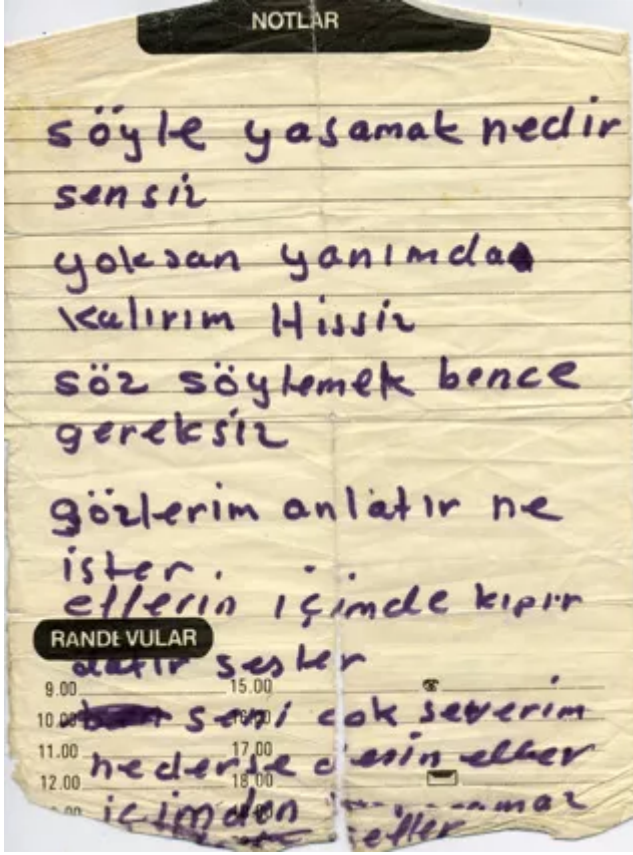 NOTLAR
söyle yaşamak nedir
sensiz
yoksan yanımda
kalırım Hissiz
söz söylemek bence
gereksiz
gözlerim anlatır ne
ister.
ellerin içimde kıpır
RANDEVULAR
datır sesler
9.00 15.00
10.00 seni çok severim
11.00 17.00 nederse desin eller
12.00 18.00
içimden
eller